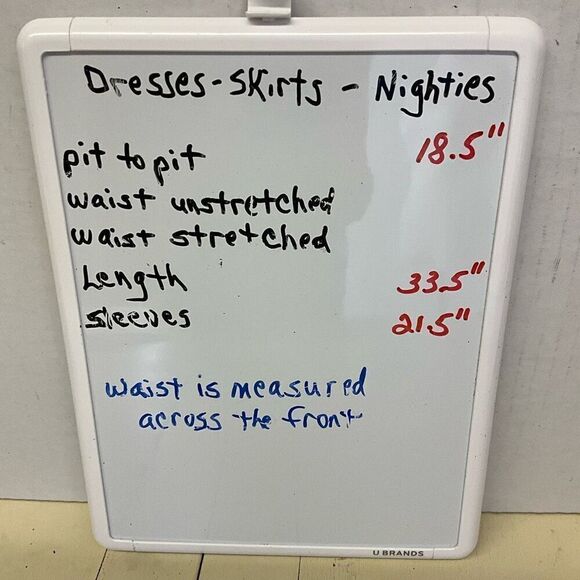 Dresses - Skirts - Nighties
pit to pit 18.5"
waist unstretched
waist stretched
Length 33.5"
sleeves 21.5"
waist is measured
across the front
U BRANDS